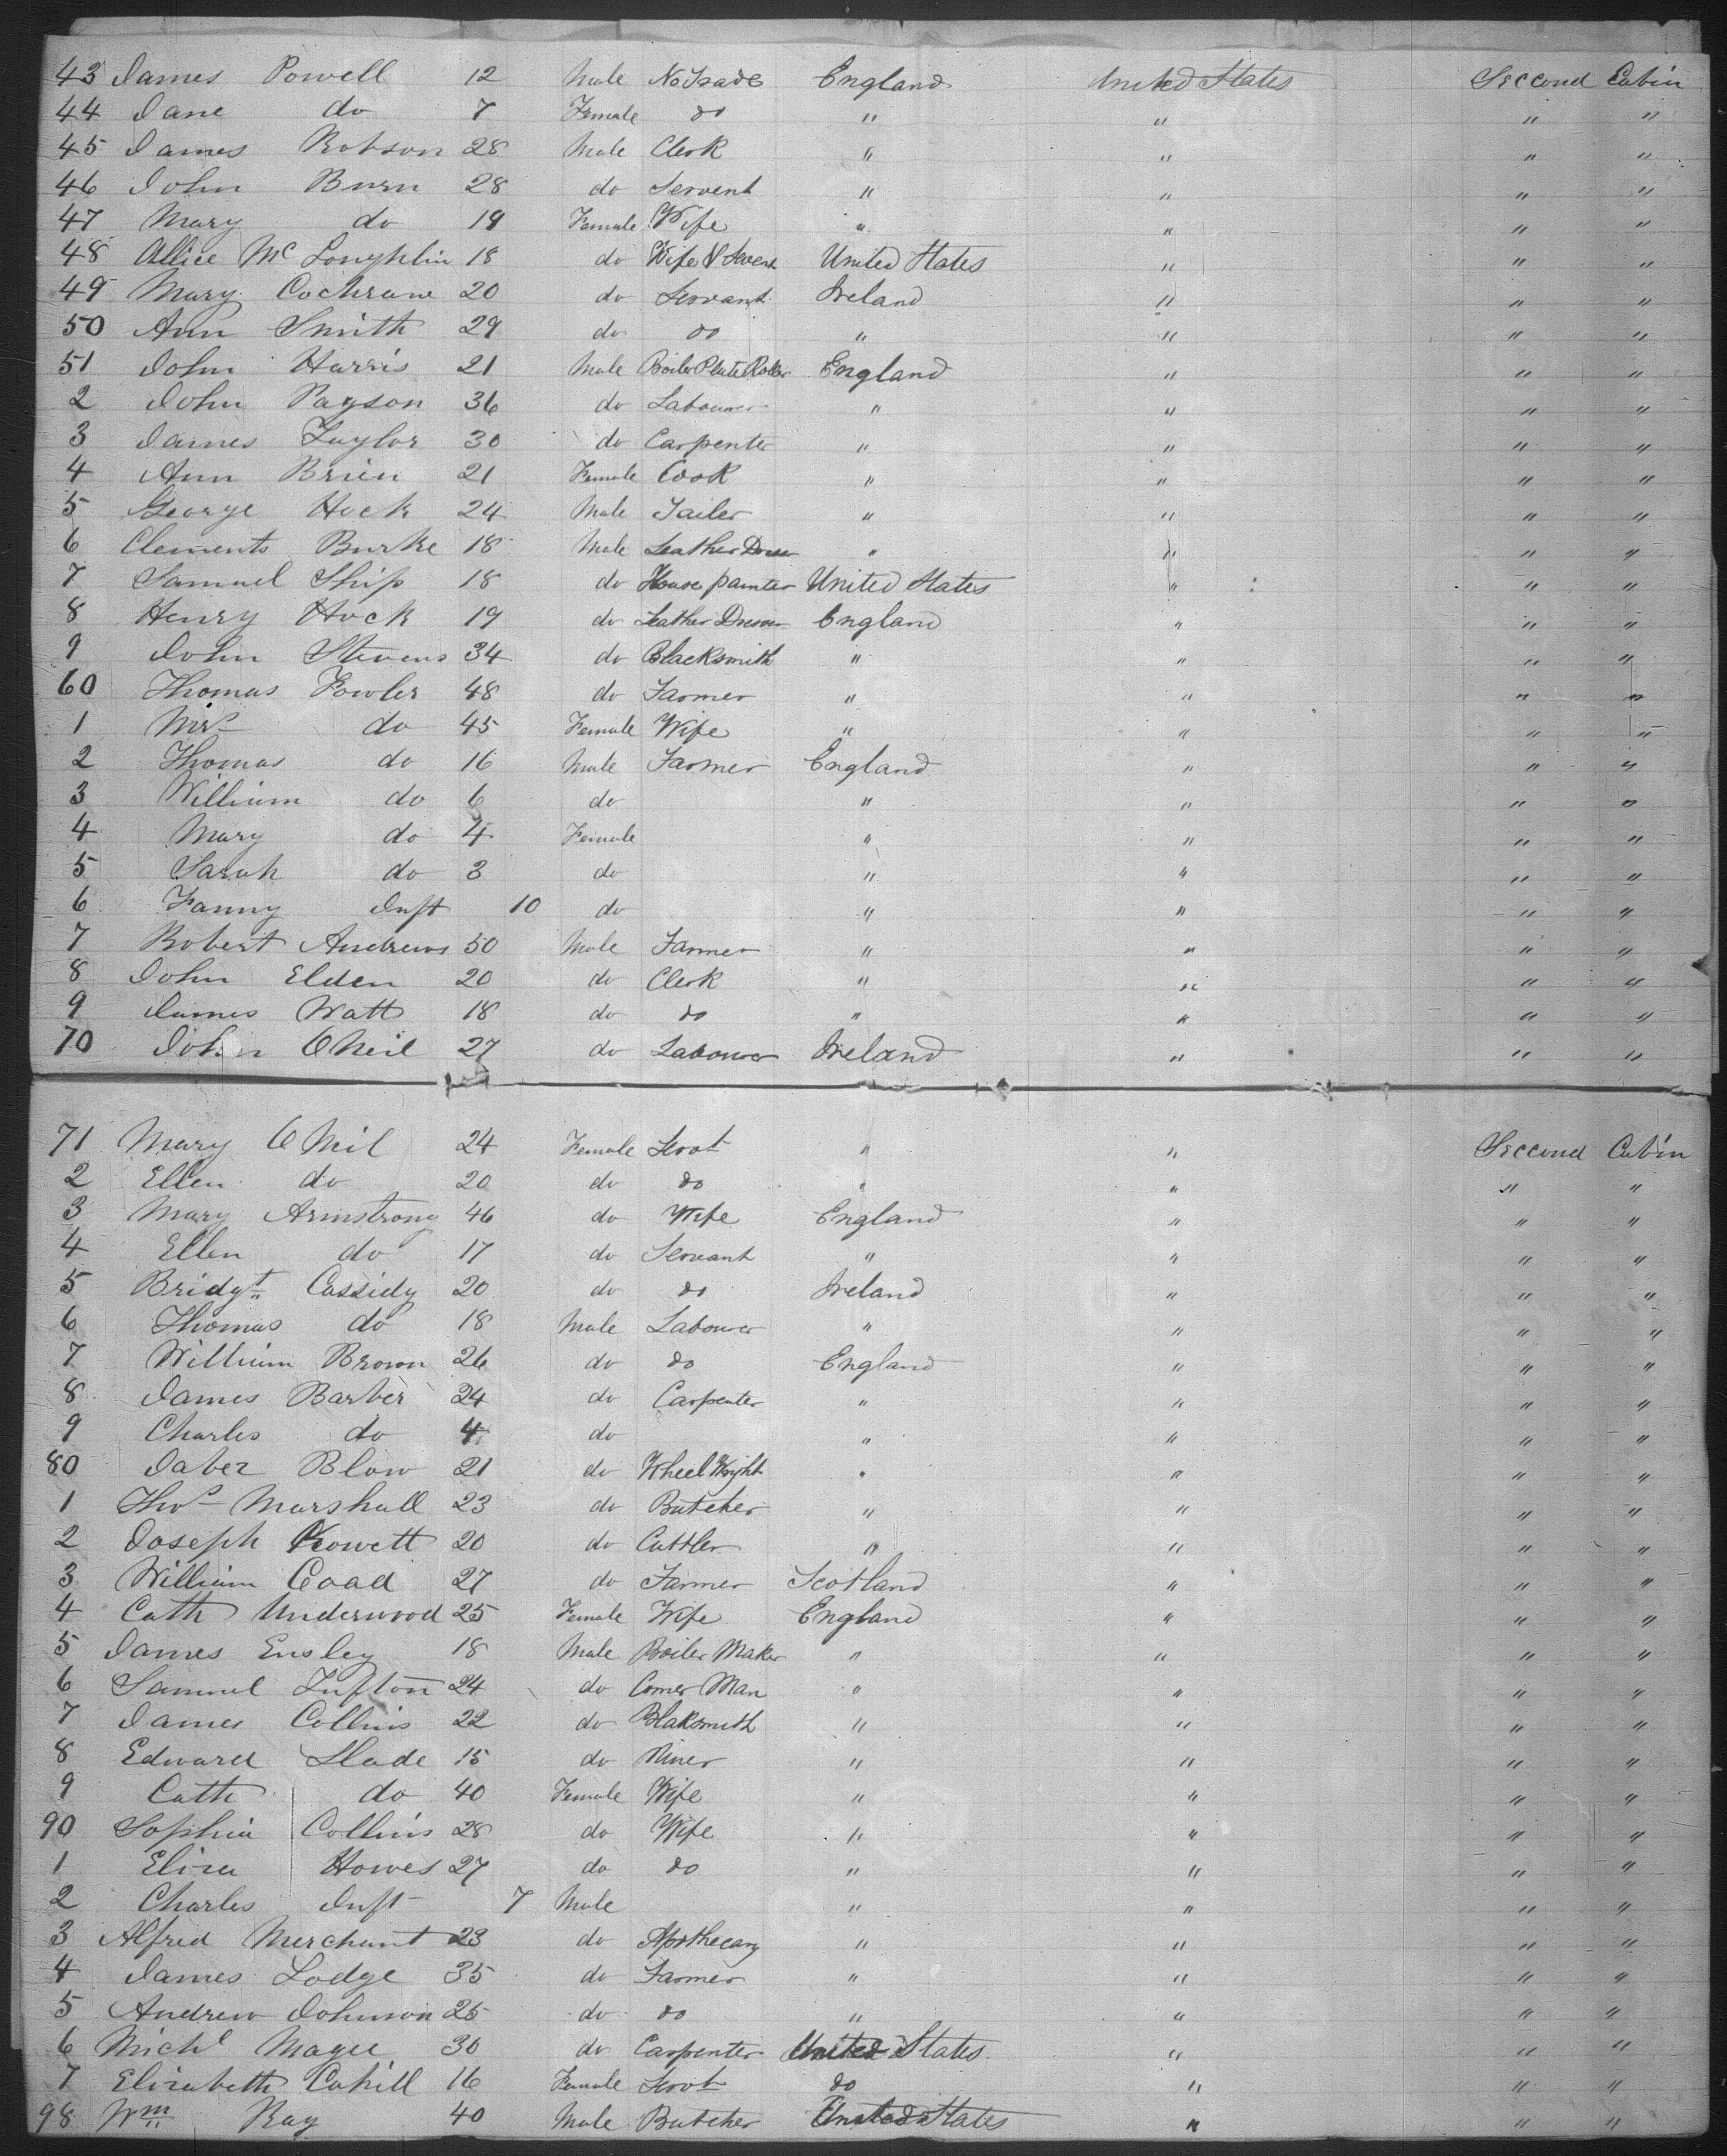 43 James Powell 12 Male No Trade England United States Second Cabin
44 Jane do 7 Female do " " " "
45 James Robson 28 Male Clerk " " " "
46 John Burn 28 do Servent " " " "
47 Mary do 19 Female Wife " " " "
48 Allice McLoughlin 18 do Wife & Servent United States " " "
49 Mary Cochrane 20 do Servant Ireland " " "
50 Ann Smith 29 do do " " " "
51 John Harris 21 Male Boiler Plate Roller England " " "
2 John Payson 36 do Labourer " " " "
3 James Taylor 30 do Carpenter " " " "
4 Ann Brien 21 Female Cook " " " "
5 George Hock 24 Male Tailer " " " "
6 Clements Burke 18 Male Leather Dresser " " " "
7 Samuel Ship 18 do House painter United States " " "
8 Henry Hock 19 do Leather Dresser England " " "
9 John Stevens 34 do Blacksmith " " " "
60 Thomas Fowler 48 do Farmer " " " "
1 Mrs do 45 Female Wife " " " "
2 Thomas do 16 Male Farmer England " " "
3 William do 6 do " " " "
4 Mary do 4 Female " " " "
5 Sarah do 3 do " " " "
6 Fanny Inft 10 do " " " "
7 Robert Andrews 50 Male Farmer " " " "
8 John Elden 20 do Clerk " " " "
9 James Watt 18 do do " " " "
70 John O Neil 27 do Labourer Ireland " " "
71 Mary O Neil 24 Female Servt " " Second Cabin
2 Ellen do 20 do do " " " "
3 Mary Armstrong 46 do Wife England " " "
4 Ellen do 17 do Servant " " " "
5 Bridgt Cassidy 20 do do Ireland " " "
6 Thomas do 18 Male Labourer " " " "
7 William Brown 26 do do England " " "
8 James Barber 24 do Carpenter " " " "
9 Charles do 4 do " " " "
80 Jabez Blow 21 do Wheel Wright " " " "
1 Thos Marshall 23 do Butcher " " " "
2 Joseph Kowett 20 do Cuttler " " " "
3 William Coad 27 do Farmer Scotland " " "
4 Cath Underwood 25 Female Wife England " " "
5 James Ensley 18 Male Boiler Maker " " " "
6 Samuel Tufton 24 do Man " " " "
7 James Collins 22 do Blaksmith " " " "
8 Edward Slade 15 do Miner " " " "
9 Cath do 40 Female Wife " " " "
90 Sophia Collins 28 do Wife " " " "
1 Eliza Howes 27 do do " " " "
2 Charles Inft 7 Male " " " "
3 Alfred Merchant 23 do Apothecary " " " "
4 James Lodge 35 do Farmer " " " "
5 Andrew Johnson 25 do do " " " "
6 Michl Magee 30 do Carpenter United States " " "
7 Elizabeth Cahill 16 Female Servt do " " "
98 Wm Ray 40 Male Butcher United States " " "